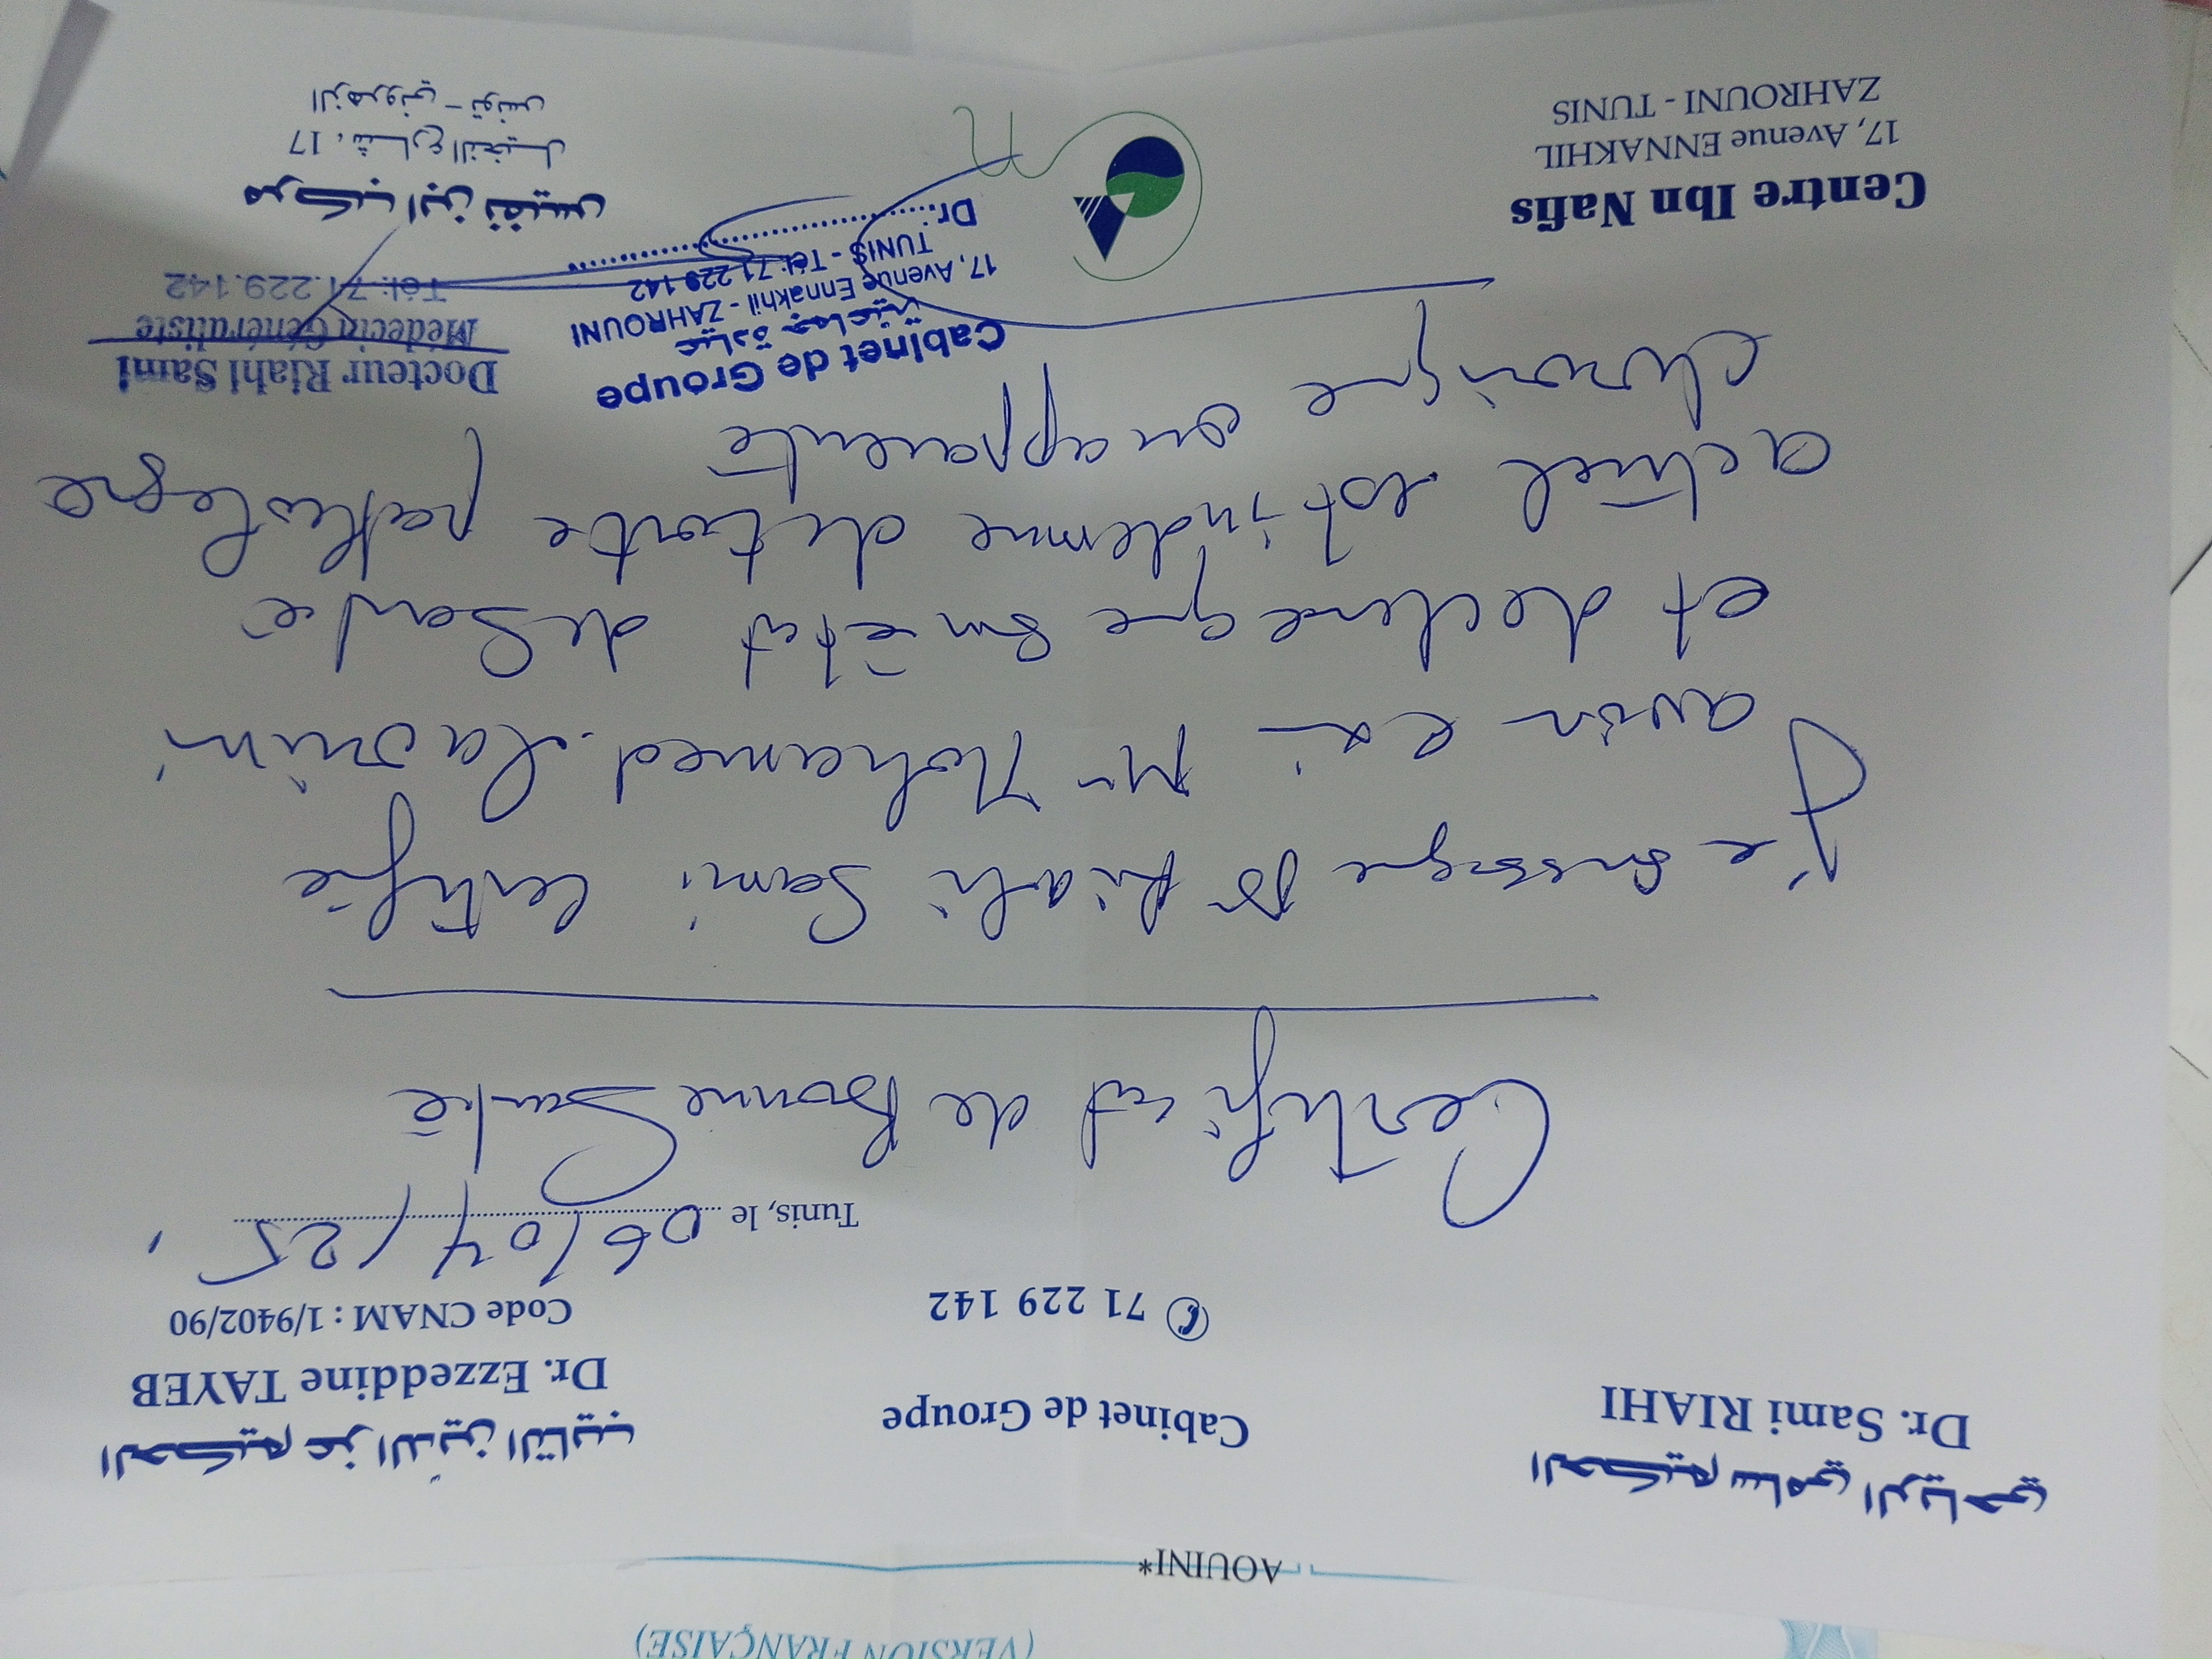 (VERSION FRANÇAISE)
AOUINI*
الحكيم سامي الرياحي
Dr. Sami RIAHI
Cabinet de Groupe
✆ 71 229 142
الحكيم عز الدين التايب
Dr. Ezzeddine TAYEB
Code CNAM : 1/9402/90
Tunis, le 06/04/25
Certificat de Bonne Santé
Je soussigné Dr Riahi Sami certifie
avoir exa. Mr Mohamed
et declare que son état de Santé
actuel est indemne de toute pathologie
chronique ou apparente
Cabinet de Groupe
عيادة جماعية
17, Avenue Ennakhil - ZAHROUNI
TUNIS - Tél: 71 229 142
Dr:
Docteur Riahi Sami
Médecin Généraliste
Tél: 71.229.142
Centre Ibn Nafis
17, Avenue ENNAKHIL
ZAHROUNI - TUNIS
مركب ابن نفيس
17 ، شارع النخيل
الزهروني - تونس